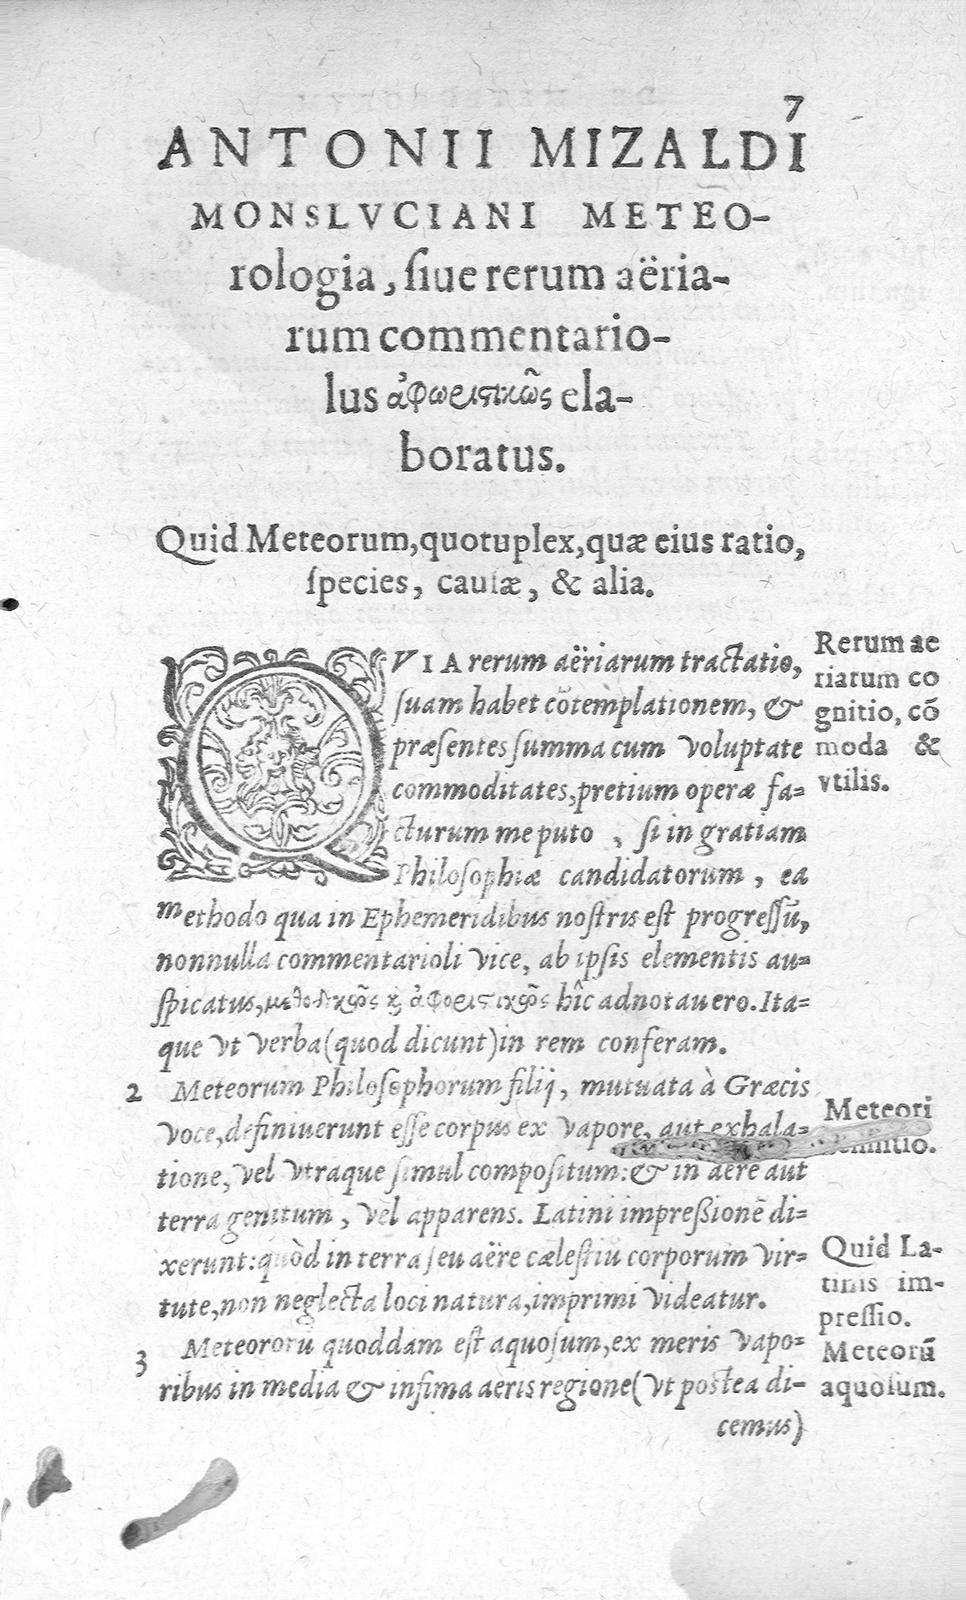 7
ANTONII MIZALDI
MONSLVCIANI METEO-
rologia, ſiue rerum aëria-
rum commentario-
lus ἀφωριστικῶς ela-
boratus.
Quid Meteorum, quotuplex, quæ eius ratio,
ſpecies, cauſæ, & alia.
QVIA rerum aëriarum tractatio,
ſuam habet cõtemplationem, &
præſentes ſumma cum voluptate
commoditates, pretium operæ fa-
cturum me puto , ſi in gratiam
Philoſophiæ candidatorum , ea
methodo qua in Ephemeridibus noſtris eſt progreſſũ,
nonnulla commentarioli vice, ab ipſis elementis au-
ſpicatus, μεθοδικῶς ϗ ἀφοριστικῶς hîc adnotauero. Ita-
que vt verba (quod dicunt) in rem conferam.
2 Meteorum Philoſophorum filij, mutuata à Græcis
voce, definiuerunt eſſe corpus ex vapore, aut exhala-
tione, vel vtraque ſimul compoſitum: & in aëre aut
terra genitum , vel apparens. Latini impreßionẽ di-
xerunt: quòd in terra ſeu aëre cæleſtiũ corporum vir-
tute, non neglecta loci natura, imprimi videatur.
3 Meteororũ quoddam eſt aquoſum, ex meris vapo-
ribus in media & infima aeris regione (vt poſtea di-
cemus)
Rerum ae
riarum co
gnitio, cõ
moda &
vtilis.
Meteori
Quid La-
tinis im-
preſſio.
Meteorũ
aquoſum.